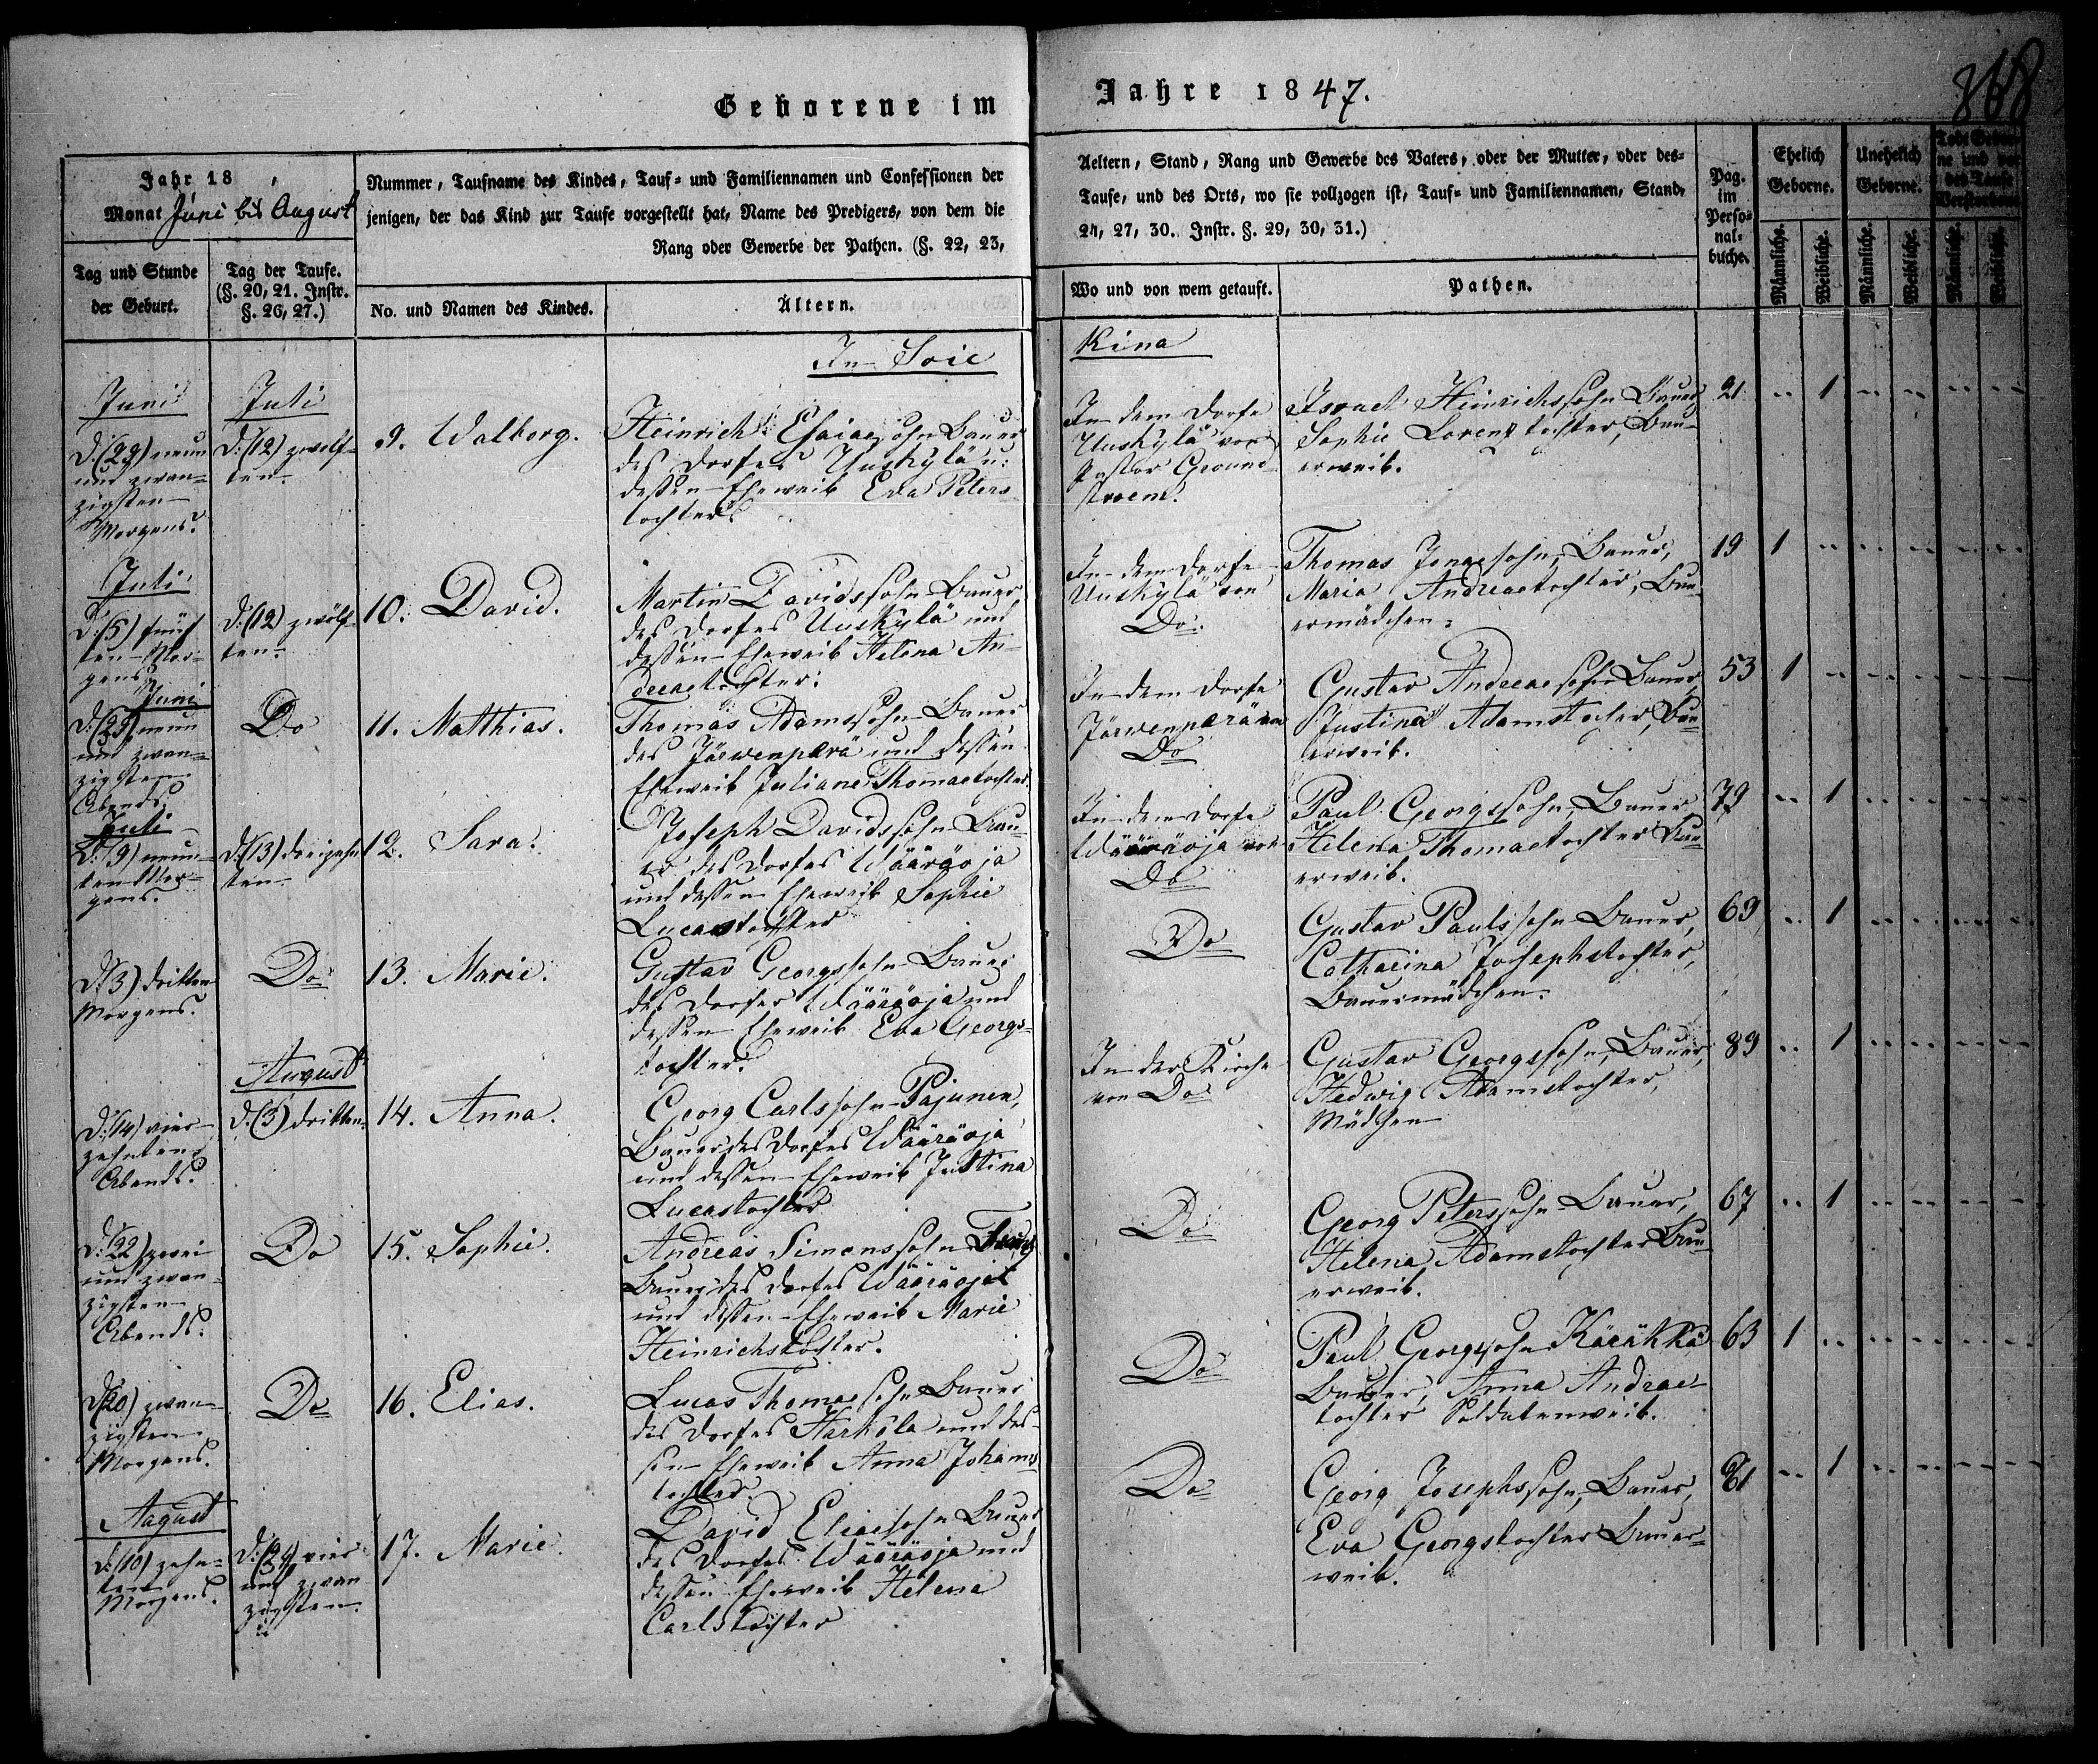 Geborene im Jahre 1847.
868
Jahr 18 ,
Monat Juni bis August
Tag und Stunde
der Geburt.
Tag der Taufe.
(§. 20, 21. Instr.
§. 26, 27.)
Nummer, Taufname des Kindes, Tauf- und Familiennamen und Confessionen der
jenigen, der das Kind zur Taufe vorgestellt hat, Name des Predigers, von dem die
Rang oder Gewerbe der Pathen. (§. 22, 23,
No. und Namen des Kindes.
Ältern.
Aeltern, Stand, Rang und Gewerbe des Vaters, oder der Mutter, oder des-
Taufe, und des Orts, wo sie vollzogen ist, Tauf- und Familiennamen, Stand,
24, 27, 30. Instr. §. 29, 30, 31.)
Wo und von wem getauft.
Pathen.
Pag.
im
Perso-
nal-
buche.
Ehelich
Geborne.
Unehelich
Geborne.
Todt Gebor-
ne und vor
der Taufe
Verstorbene.
Männliche.
Weibliche.
Männliche.
Weibliche.
Männliche.
Weibliche.
In Soikina
Juni
d. (29) neun
und zwan-
zigsten
Morgens.
Juli
d. (12) zwölf-
ten
9. Walborg.
Heinrich Esaiaesohn Bauer
des Dorfes Uuskylä u:
dessen Eheweib Eva Peters
tochter
In dem Dorfe
Uuskylä von
Pastor Groune-
stroem.
Israel Heinrichssohn Bauer,
Sophie Lorenztochter, Bau-
erweib.
21 .. 1 .. .. .. ..
Juli
d. (5) fünf
ten Mor-
gens
d. (12) zwölf-
ten.
10. David.
Martin Davidssohn Bauer
des Dorfes Uuskylä und
dessen Eheweib Helena An-
dreaetochter.
In dem Dorfe
Uuskylä von
Do.
Thomas Jonaesohn, Bauer,
Maria Andreaetochter, Bau-
ermädchen.
19 1 .. .. .. .. ..
Juni
d. (29) neun
und zwan-
zigsten
Abends.
Do
11. Matthias.
Thomas Adamssohn Bauer
des Järwenperä und dessen
Eheweib Juliane Thomaetochter.
In dem Dorfe
Järwenperä von
Do
Gustav Andreaesohn Bauer,
Justina Adamstochter, Bau-
erweib.
53 1 .. .. .. .. ..
Juli
d. (9) neun-
ten Mor-
gens.
d. (13) dreizehn
ten
12. Sara.
Joseph Davidssohn Bau-
er des Dorfes Wääräoja
und dessen Eheweib Sophie
Lucaetochter
In dem Dorfe
Wääräoja von
Do
Paul Georgssohn, Bauer
Helena Thomaetochter Bau-
erweib.
79 .. 1 .. .. .. ..
d. (3) dritten
Morgens.
Do
13. Marie.
Gustav Georgssohn Bauer
des Dorfes Wääräoja und
dessen Eheweib Eva Georgs-
tochter.
Do
Gustav Paulssohn Bauer,
Catharina Josephstochter,
Bauermädchen.
69 .. 1 .. .. .. ..
d. (14) vier-
zehnten
Abends.
August
d. (3) dritten.
14. Anna.
Georg Carlssohn Pajunen,
Bauer des Dorfes Wääräoja
und dessen Eheweib Justina
Lucaetochter
In der Kirche
von Do
Gustav Georgssohn, Bauer,
Hedwig Adamstochter,
Mädchen
89 .. 1 .. .. .. ..
d. (22) zwei
und zwan-
zigsten
Abends.
Do
15. Sophie.
Andreas Simonssohn
Bauer des Dorfes Wääräoja
und dessen Eheweib Marie
Heinrichstochter.
Do
Georg Peterssohn Bauer,
Helena Adamstochter Bau-
erweib.
67 .. 1 .. .. .. ..
d. (20) zwan-
zigsten
Morgens.
Do
16. Elias.
Lucas Thomaesohn Bauer
des Dorfes Harkola und des-
sen Eheweib Anna Johanns
tochter.
Do
Paul Georgssohn Käräkkä
Bauer, Anna Andreae-
tochter Soldatenweib.
63 1 .. .. .. .. ..
August
d. (10) zehn-
ten
Morgens.
d. (24) vier
und zwan
zigsten.
17. Marie.
David Eliaesohn Bauer
des Dorfes Wääräoja und
dessen Eheweib Helena
Carlstochter
Do
Georg Josephssohn, Bauer,
Eva Georgstochter Bauer-
weib.
81 .. 1 .. .. .. ..